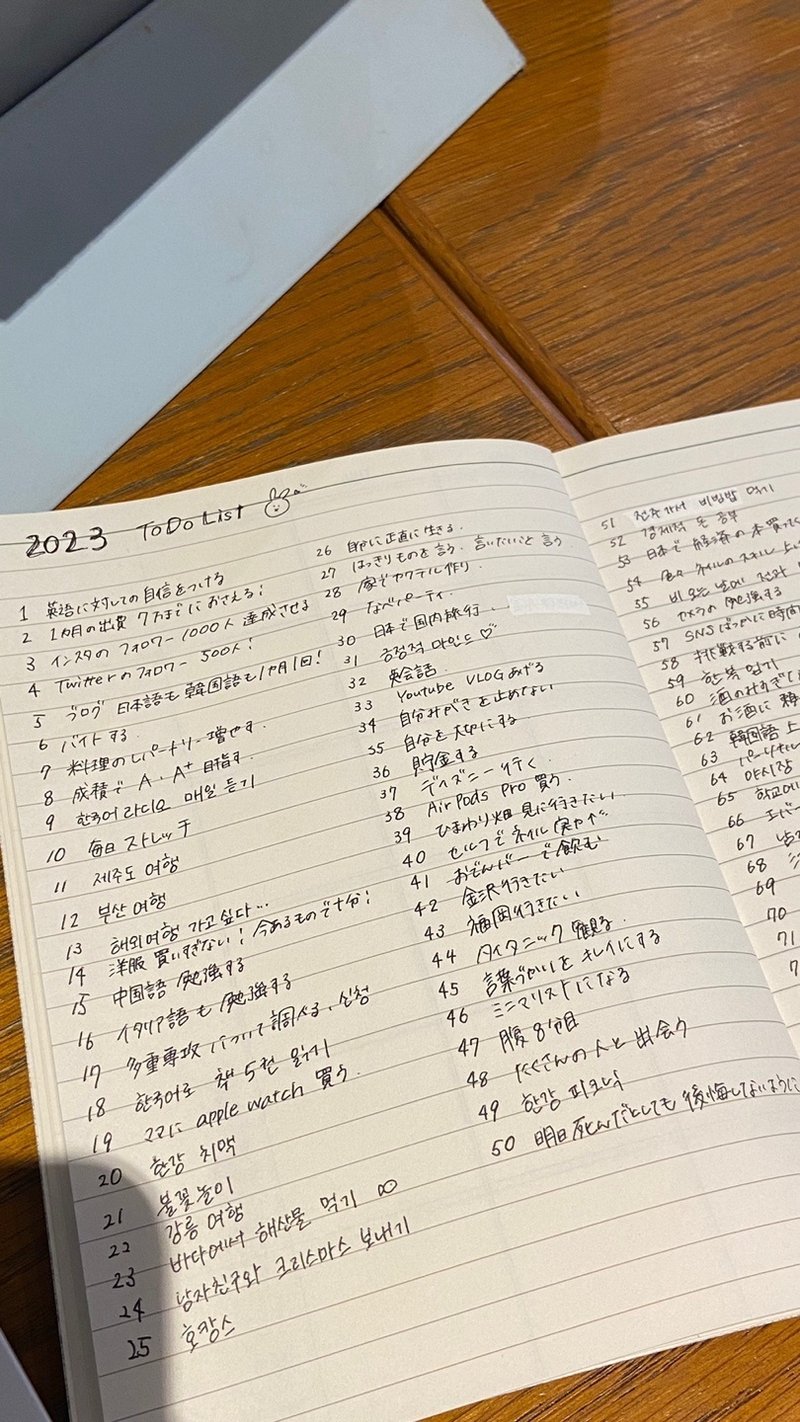 2023 ToDo List
1 英語に対しての自信をつける
2 1カ月の出費 7万までにおさえる!
3 インスタのフォロワー1000人達成させる
4 Twitterのフォロワー 500人!
5 ブログ 日本語も韓国語も1ヶ月1回!
6 バイトする
7 料理のレパートリー増やす.
8 成績で A・A+ 目指す.
9 한국어 라디오 매일 듣기
10 毎日ストレッチ
11 제주도 여행
12 부산 여행
13 해외여행 가고싶다...
14 洋服買いすぎない! 今あるもので十分!
15 中国語勉強する
16 イタリア語も勉強する
17 多重専攻について調べる、신청
18 한국어로 책 5권 읽기
19 ママに apple watch 買う.
20 한강 치맥
21 불꽃놀이
22 강릉 여행
23 바다에서 해산물 먹기 ∞
24 남자친구와 크리스마스 보내기
25 호캉스
26 自分に正直に生きる.
27 はっきりものを言う. 言いたいこと言う
28 家でカクテル作り.
29 なべパーティ.
30 日本で国内旅行.
31 긍정적 마인드♡
32 英会話.
33 Youtube VLOGあげる
34 自分みがきを止めない
35 自分を大切にする
36 貯金する
37 ディズニー行く.
38 AirPods Pro 買う.
39 ひまわり畑見に行きたい
40 セルフでネイル
41 おでんバーで飲む
42 金沢行きたい
43 福岡行きたい
44 タイタニック観る.
45 言葉づかいをキレイにする
46 ミニマリストになる
47 腹8分目
48 たくさんの人と出会う
49 한강 피크닉
50 明日死んだとしても後悔しないように
51 전주가서 비빔밥 먹기
52 경제적 공부
53 日本で
54 ネイルのスキル
55 비오는날에
56 カメラの勉強する
57 SNSばっかに時間
58 挑戦する前に
59 한복 입기
60 酒のみすぎ
61 お酒に
62 韓国語
63
64 야시장
65 학교에
66
67
68
69
70
71
7